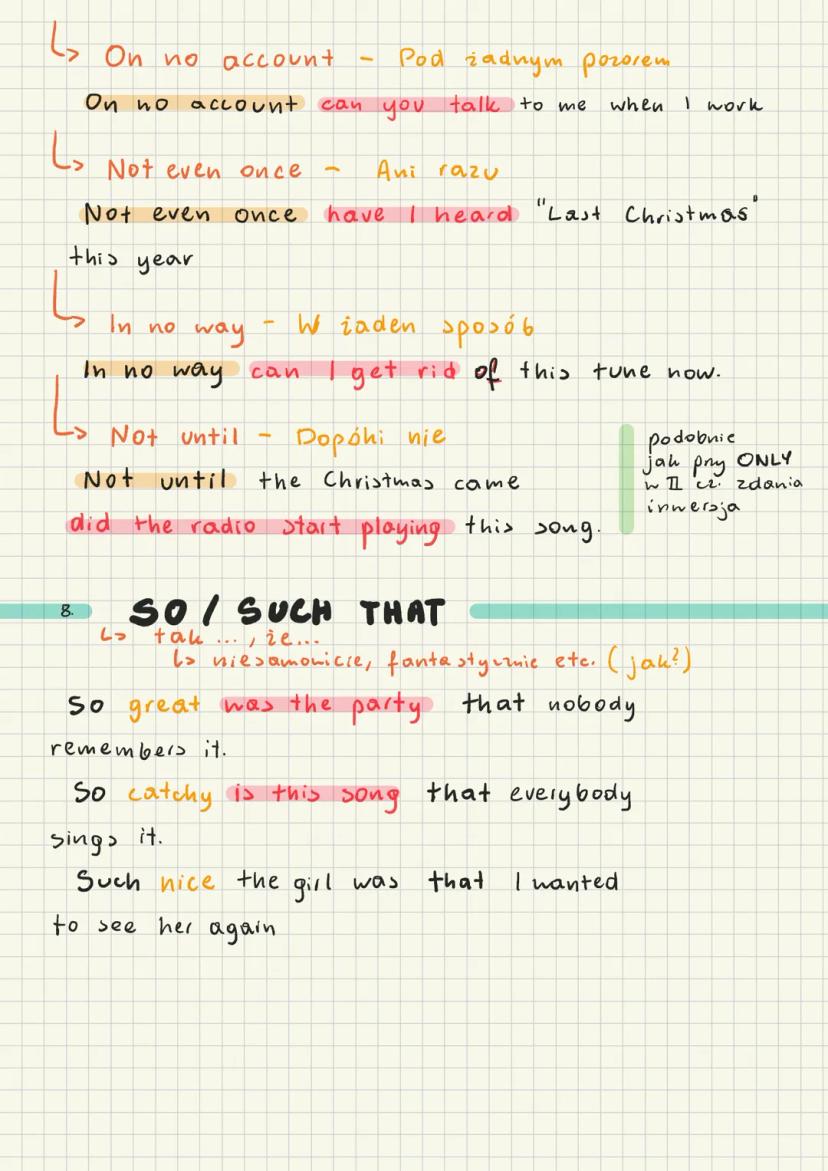 ↳ On no account - Pod żadnym pozorem
On no account can you talk to me when I work
↳ Not even once - Ani razu
Not even once have I heard "Last Christmas"
this year
↳ In no way - W żaden sposób
In no way can I get rid of this tune now.
↳ Not until - Dopóki nie
Not until the Christmas came
did the radio start playing this song.
podobnie
jak przy ONLY
w II cz. zdania
inwersja
8. SO / SUCH THAT
↳ tak ..., że...
↳ niesamowicie, fantastycznie etc. (jak?)
So great was the party that nobody
remembers it.
So catchy is this song that everybody
sings it.
Such nice the girl was that I wanted
to see her again